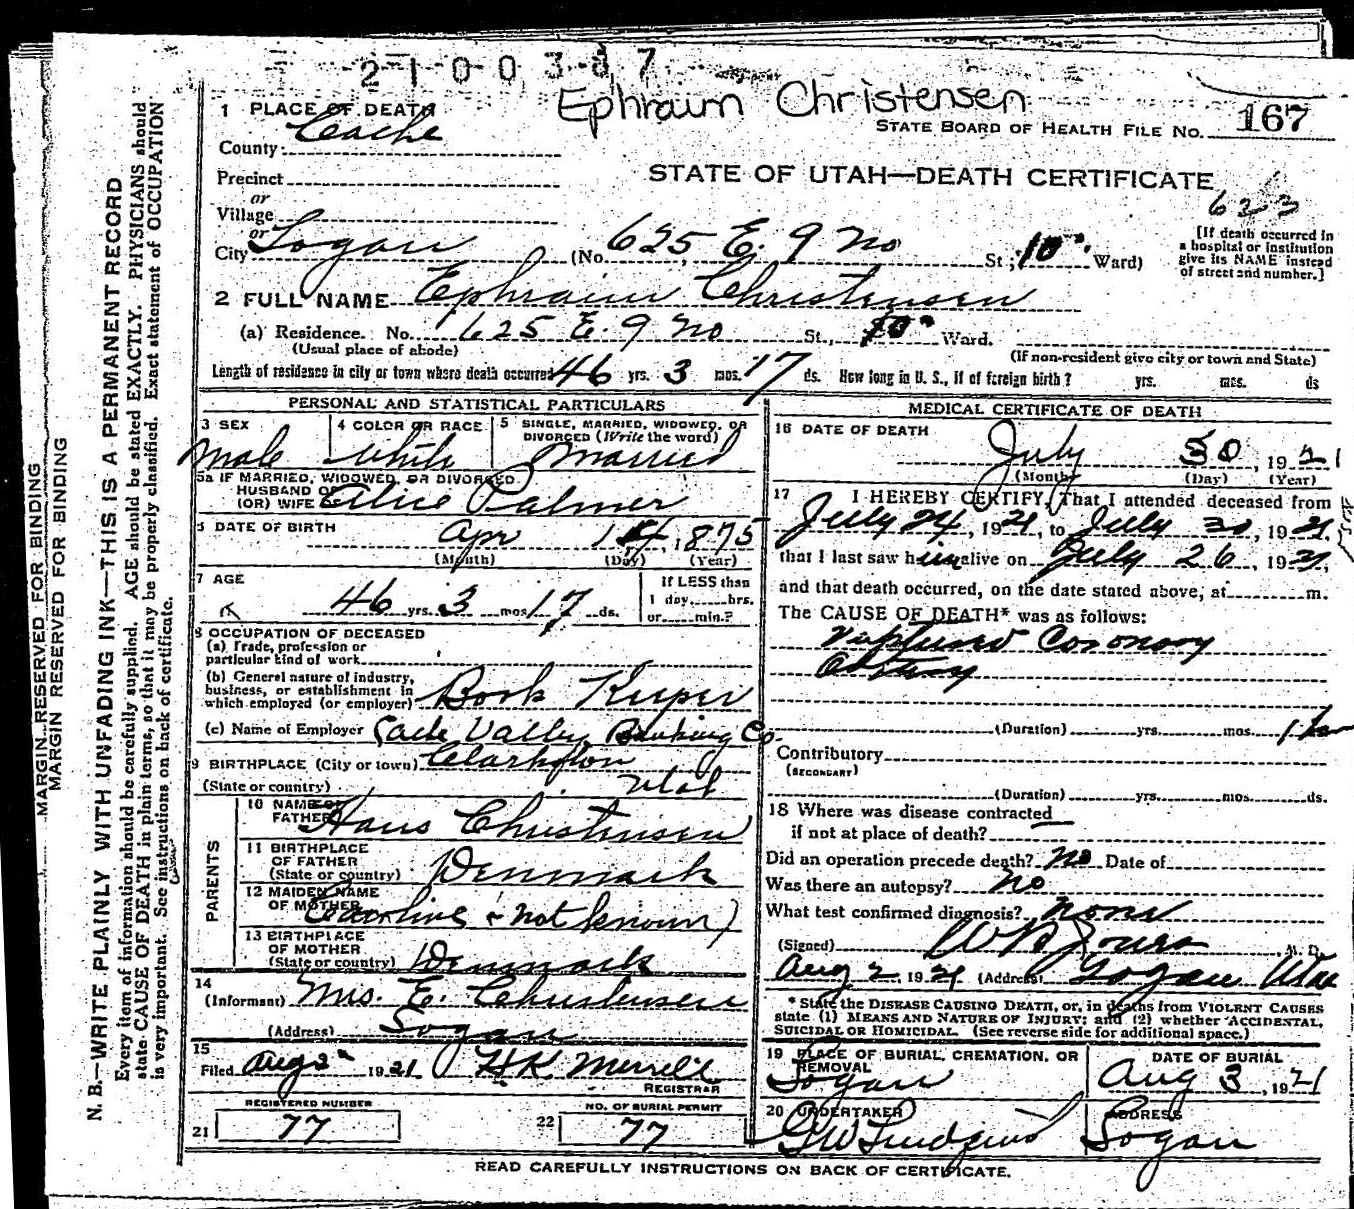 2 1 0 0 3 8 7
Ephraim Christensen
1 PLACE OF DEATH
STATE BOARD OF HEALTH FILE No. 167
County: Cache
STATE OF UTAH—DEATH CERTIFICATE
Precinct
623
or
Village
or
City Logan (No. 625 E. 9 No St; 10 Ward)
[If death occurred in
a hospital or institution
give its NAME instead
of street and number.]
2 FULL NAME Ephraim Christensen
(a) Residence. No. 625 E. 9 No St., 10 Ward.
(Usual place of abode)
(If non-resident give city or town and State)
Length of residence in city or town where death occurred 46 yrs. 3 mos. 17 ds. How long in U. S., if of foreign birth? yrs. mos. ds
PERSONAL AND STATISTICAL PARTICULARS
3 SEX
Male
4 COLOR OR RACE
White
5 SINGLE, MARRIED, WIDOWED, OR
DIVORCED (Write the word)
Married
5a IF MARRIED, WIDOWED, OR DIVORCED
HUSBAND OF
(OR) WIFE Alice Palmer
6 DATE OF BIRTH
Apr 14, 1875
(Month) (Day) (Year)
7 AGE
46 yrs. 3 mos 17 ds.
If LESS than
1 day,......hrs.
or......min.?
8 OCCUPATION OF DECEASED
(a) Trade, profession or
particular kind of work
(b) General nature of industry,
business, or establishment in
which employed (or employer) Book Keeper
(c) Name of Employer Cache Valley Banking Co.
9 BIRTHPLACE (City or town) Clarkston
(State or country) Utah
PARENTS
10 NAME OF
FATHER Hans Christensen
11 BIRTHPLACE
OF FATHER
(State or country) Denmark
12 MAIDEN NAME
OF MOTHER Caroline (not known)
13 BIRTHPLACE
OF MOTHER
(State or country) Denmark
14
(Informant) Mrs. E. Christensen
(Address) Logan
15
Filed Aug 2 1921 H K Merrill
REGISTRAR
REGISTERED NUMBER
21 77
NO. OF BURIAL PERMIT
22 77
MEDICAL CERTIFICATE OF DEATH
16 DATE OF DEATH
July 30, 1921
(Month) (Day) (Year)
17 I HEREBY CERTIFY, That I attended deceased from
July 24, 1921, to July 30, 1921,
that I last saw him alive on July 26, 1921,
and that death occurred, on the date stated above, at m.
The CAUSE OF DEATH* was as follows:
Ruptured Coronary
Artery
(Duration) yrs. mos.
Contributory
(SECONDARY)
(Duration) yrs. mos. ds.
18 Where was disease contracted
if not at place of death?
Did an operation precede death? No Date of
Was there an autopsy? No
What test confirmed diagnosis? None
(Signed) M. D.
Aug 2, 1921 (Address) Logan Utah
* State the DISEASE CAUSING DEATH, or, in deaths from VIOLENT CAUSES
state (1) MEANS AND NATURE OF INJURY; and (2) whether ACCIDENTAL,
SUICIDAL or HOMICIDAL. (See reverse side for additional space.)
19 PLACE OF BURIAL, CREMATION, OR
REMOVAL
Logan
DATE OF BURIAL
Aug 3, 1921
20 UNDERTAKER
ADDRESS
Logan
READ CAREFULLY INSTRUCTIONS ON BACK OF CERTIFICATE.
MARGIN RESERVED FOR BINDING
MARGIN RESERVED FOR BINDING
N. B.—WRITE PLAINLY WITH UNFADING INK—THIS IS A PERMANENT RECORD
Every item of information should be carefully supplied. AGE should be stated EXACTLY. PHYSICIANS should
state CAUSE OF DEATH in plain terms, so that it may be properly classified. Exact statement of OCCUPATION
is very important. See instructions on back of certificate.